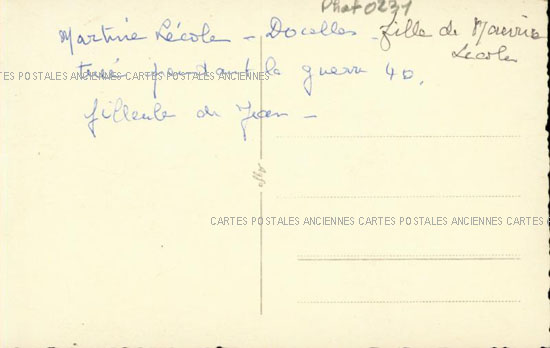 Phot 0231
Martine Lécolle - Docelles fille de Maurice
Lecolle
CARTES POSTALES ANCIENNES CARTES POSTALES ANCIENNES CARTES POSTALES ANCIENNES CARTES POSTALES
tué pendant la guerre 40.
filleule de Jean -
CARTES POSTALES ANCIENNES CARTES POSTALES ANCIENNES CARTES